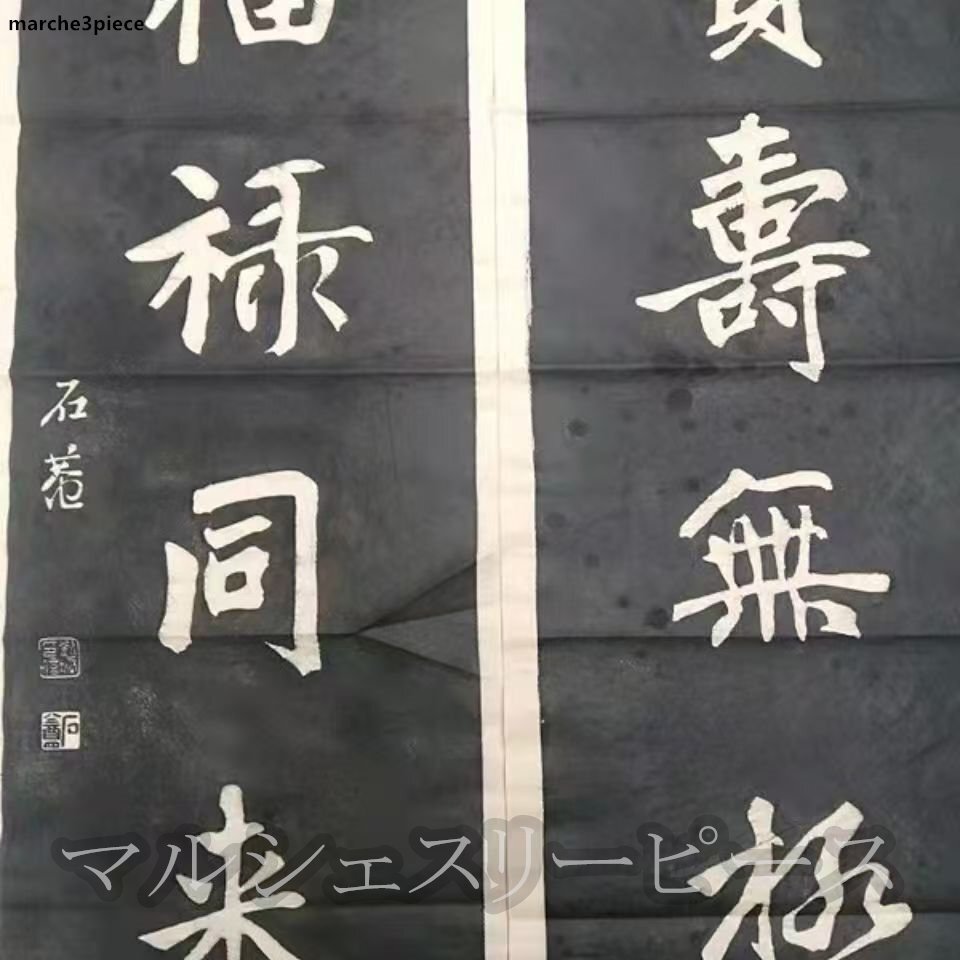 marche3piece
寿無極
禄同来
石菴
マルシェスリーピース